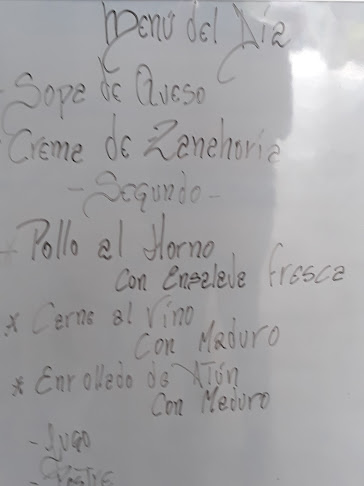 Menú del Día
- Sopa de Queso
- Crema de Zanahoria
- Segundo -
* Pollo al Horno
con Ensalada fresca
* Carne al Vino
Con Maduro
* Enrollado de Atún
Con Maduro
- Jugo
- Postre